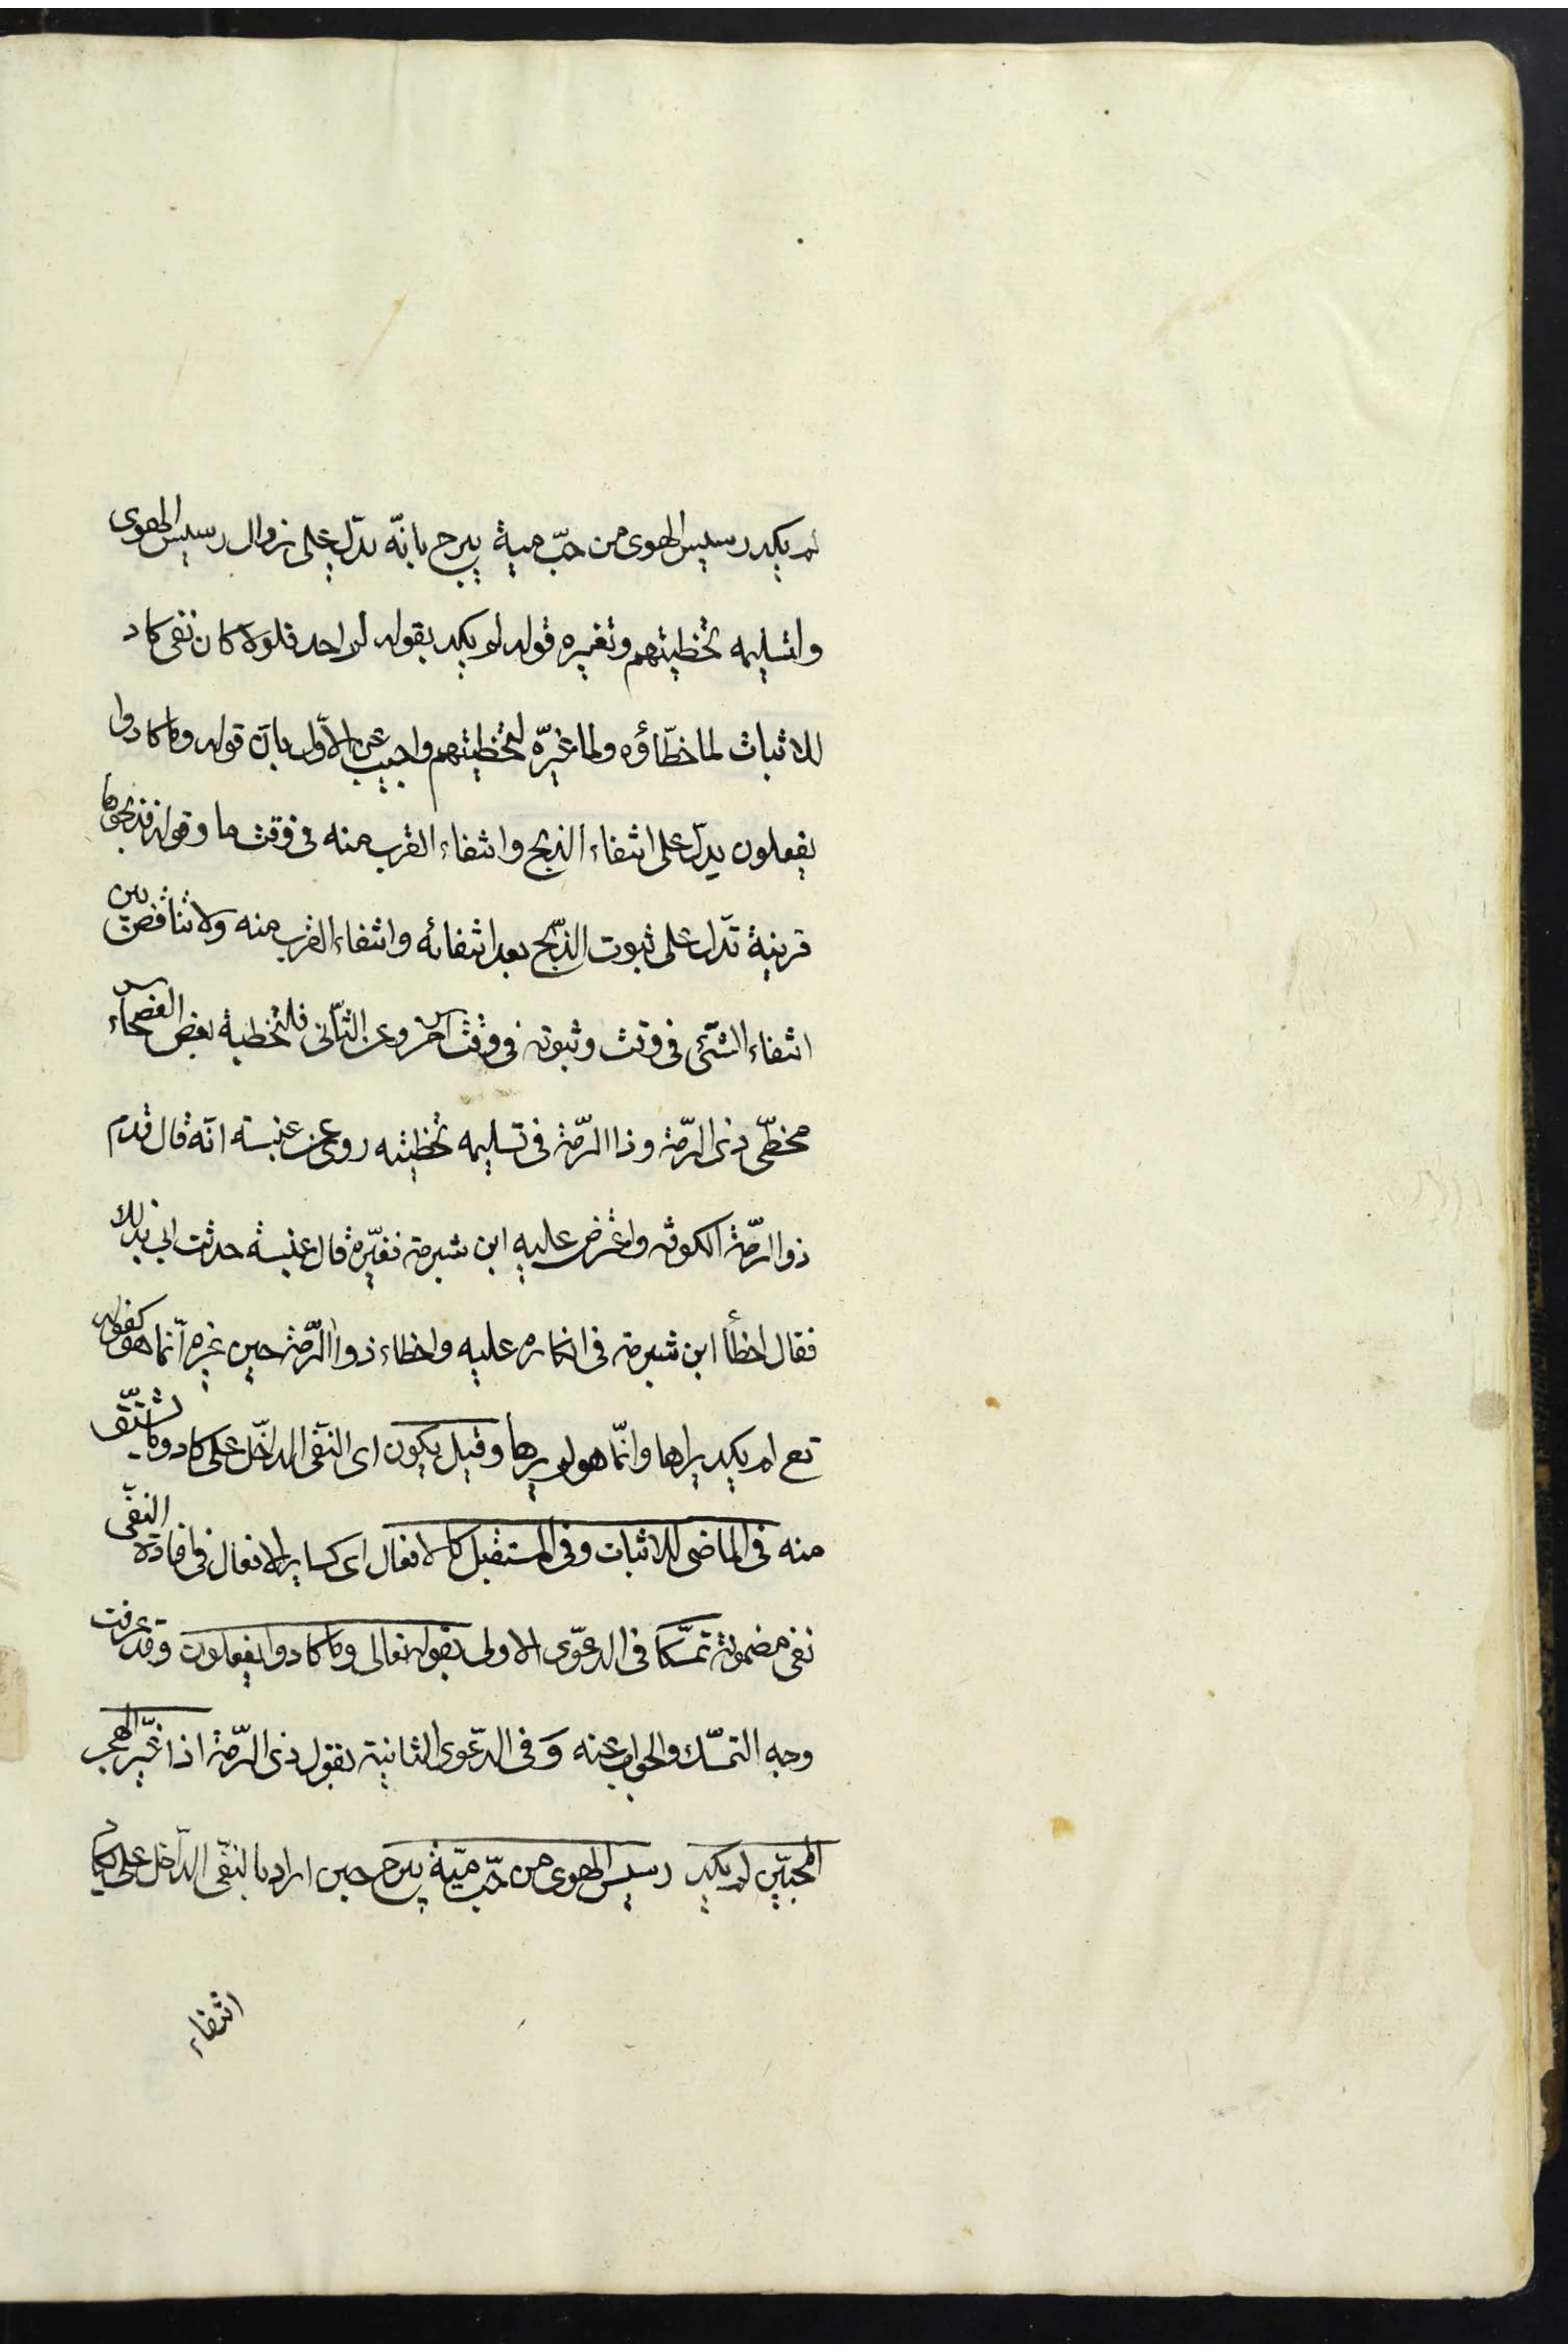 لم يكد رسيس الهوى من حبّ مية يبرح بانّه يدّل على زوال رسيس الهوى
ولتسليمه تخطيئتهم وتغييره قوله لم يكد بقوله لم اجد فلولا كان نفى كاد
للاثبات لما خطّاؤه ولما غيرّه لتخظيئتهم واجيب عن الاوّل بانّ قوله وما كادوا
يفعلون يدلّ على انتفاء الذبح وانتفاء القرب منه فى وقت ما وقوله فذبحوها
قرينة تدّل على ثبوت الذبّح بعد انتفائه وانتفاء القرب منه ولا تناقض بين
انتفاء الشّئ فى وقت وثبوته فى وقت آخر وعن الثّانى فلتخطية بعض الفصحاء
مخطّى ذى الرمّة وذا الرمّة فى تسليمه تخطيئته روى عن عنبسة انّه قال قدم
ذو الرمّة الكوفه واعترض عليه ابن شبرمة فغيّره قال عنبسة حدثت ابى بذلك
فقال اخطأ ابن شبرمة فى انكاره عليه واخطاء ذو الرّمة حين غيره انّما هو كقوله
تع لم يكد يراها وانّما هو لم يرها وقيل يكون اى النفّى الداخل على كاد وما يشتّق
منه فى الماضى للاثبات وفى المستقبل كالافعال اى كساير الافعال فى افادة النفّى
نفى مضمونه تمسّكا فى الدعوّى الاولى بقوله تعالى وما كادوا يفعلون وقد عرفت
وجه التمسّك والجواب عنه وَ فى الدّعوى الثانية بقول ذى الرّمة اذا غيّر الهجر
المحبيّن لم يكد رسيس الهوى من حبّ ميّة يبرح حين اراد بالنفّى الدّاخل على يكاد
انتفاء